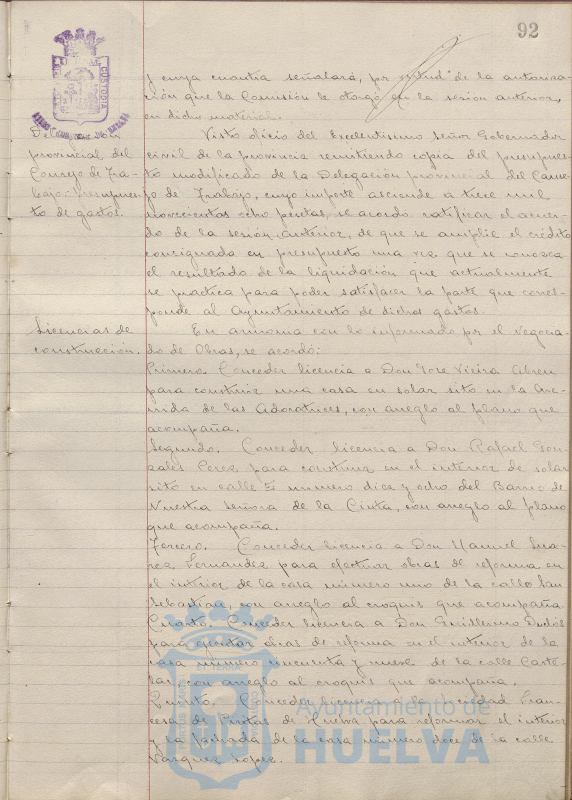 92
CUSTODIA
y cuya cuantía señalará, por virtud de la autoriza-
ción que la Comisión le otorgó en la sesión anterior,
en dicho material.
Delegación
provincial del
Consejo de Tra-
bajo-Presupues-
to de gastos.
Visto oficio del Excelentísimo Señor Gobernador
civil de la provincia remitiendo copia del presupues-
to modificado de la Delegación provincial del Conse-
jo de Trabajo, cuyo importe asciende a trece mil
novecientas ocho pesetas, se acordó ratificar el acuer-
do de la sesión anterior, de que se amplíe el crédito
consignado en presupuesto una vez que se conozca
el resultado de la liquidación que actualmente
se practica para poder satisfacer la parte que corres-
ponde al Ayuntamiento de dichos gastos.
Licencias de
construcción.
En armonía con lo informado por el Negocia-
do de Obras, se acordó:
Primero. Conceder licencia a Don José Vieira Abreu
para construir una casa en solar sito en la Ave-
nida de las Adoratrices, con arreglo al plano que
acompaña.
Segundo. Conceder licencia a Don Rafael Gon-
zales Perez para construir en el interior de solar
sito en calle número diez y ocho del Barrio de
Nuestra Señora de la Cinta, con arreglo al plano
que acompaña.
Tercero. Conceder licencia a Don Manuel Sua-
rez Fernandez para efectuar obras de reforma en
el interior de la casa número uno de la calle San
Sebastian, con arreglo al croquis que acompaña.
Cuarto. Conceder licencia a Don Guillermo Duclós
para ejecutar obras de reforma en el interior de la
casa número cincuenta y nueve de la calle Caste-
lar, con arreglo al croquis que acompaña.
Quinto. Conceder licencia a la Sociedad Fran-
cesa de Piritas de Huelva para reformar el interior
y la fachada de la casa número doce de la calle
Vazquez Lopez.
Ayuntamiento de
HUELVA